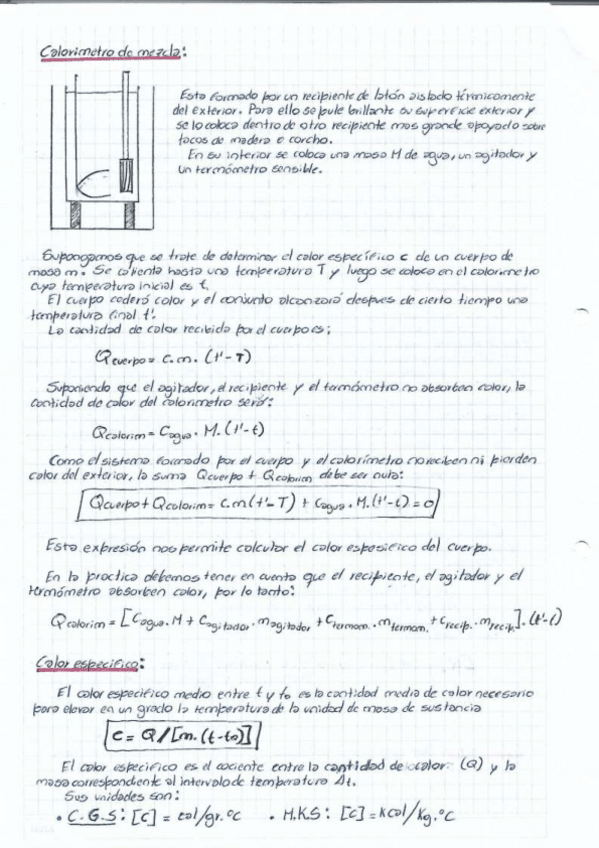 Calorimetro de mezcla:
Esta formado por un recipiente de latón aislado térmicamente
del exterior. Para ello se pule brillante su superficie exterior y
se lo coloca dentro de otro recipiente mas grande apoyado sobre
tacos de madera o corcho.
En su interior se coloca una masa M de agua, un agitador y
un termómetro sensible.
Supongamos que se trate de determinar el calor específico c de un cuerpo de
masa m. Se calienta hasta una temperatura T y luego se coloca en el calorimetro
cuya temperatura inicial es t.
El cuerpo cederá calor y el conjunto alcanzará despues de cierto tiempo una
temperatura final t'.
La cantidad de calor recibida por el cuerpo es;
Qcuerpo = c.m. (t'-T)
Suponiendo que el agitador, el recipiente y el termómetro no absorben calor, la
cantidad de calor del calorimetro será:
Qcalorim = Cagua . M. (t'-t)
Como el sistema formado por el cuerpo y el calorímetro no reciben ni pierden
calor del exterior, la suma Qcuerpo + Qcalorim debe ser nula:
Qcuerpo + Qcalorim = c.m (t'-T) + Cagua . M. (t'-t) = 0
Esta expresión nos permite calcular el calor espesifico del cuerpo.
En la practica debemos tener en cuenta que el recipiente, el agitador y el
termómetro absorben calor, por lo tanto:
Qcalorim = [Cagua . M + Cagitador . magitador + Ctermom. . mtermom. + Crecip. . mrecip.] . (t'-t)
Calor especifico:
El calor especifico medio entre t y to es la cantidad media de calor necesario
para elevar en un grado la temperatura de la unidad de masa de sustancia
c = Q / [m. (t-to)]
El calor especifico es el cociente entre la cantidad de calor (Q) y la
masa correspondiente al intervalo de temperatura Δt.
Sus unidades son:
• C.G.S: [c] = cal/gr.ºC • M.K.S: [c] = kcal/kg.ºC